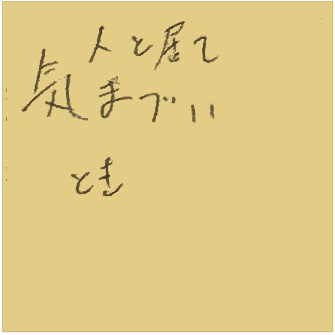 人と居て
気まづい
とき